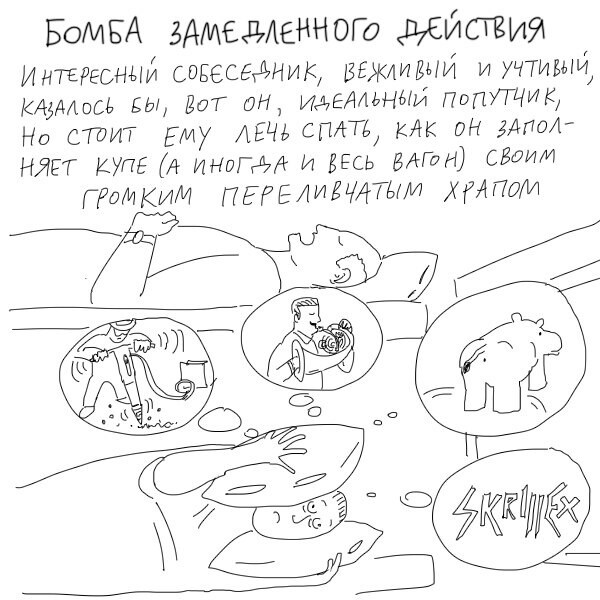 БОМБА ЗАМЕДЛЕННОГО ДЕЙСТВИЯ
ИНТЕРЕСНЫЙ СОБЕСЕДНИК, ВЕЖЛИВЫЙ И УЧТИВЫЙ,
КАЗАЛОСЬ БЫ, ВОТ ОН, ИДЕАЛЬНЫЙ ПОПУТЧИК,
НО СТОИТ ЕМУ ЛЕЧЬ СПАТЬ, КАК ОН ЗАПОЛ-
НЯЕТ КУПЕ (А ИНОГДА И ВЕСЬ ВАГОН) СВОИМ
ГРОМКИМ ПЕРЕЛИВЧАТЫМ ХРАПОМ
SKRILLEX